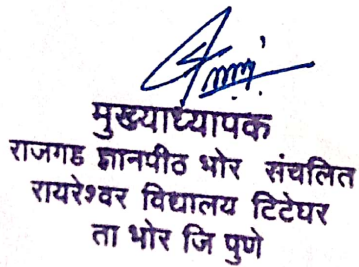 मुख्याध्यापक
राजगड ज्ञानपीठ भोर संचलित
रायरेश्वर विद्यालय टिटेघर
ता भोर जि पुणे